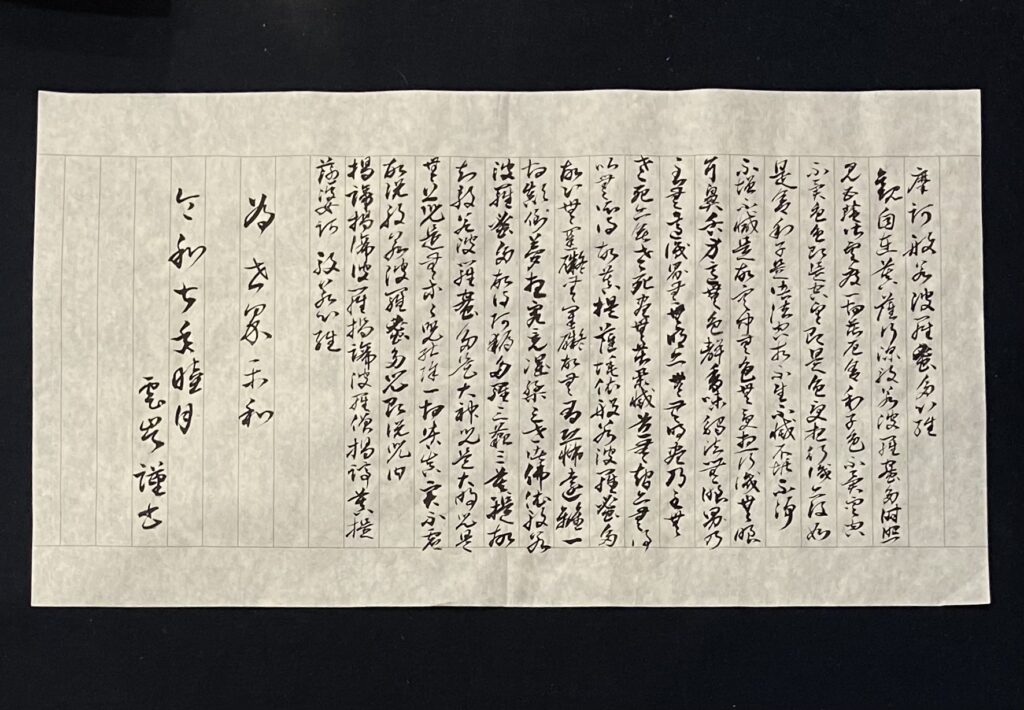 摩訶般若波羅蜜多心経
観自在菩薩行深般若波羅蜜多時照
見五蘊皆空度一切苦厄舎利子色不異空空
不異色色即是空空即是色受想行識亦復如
是舎利子是諸法空相不生不滅不垢不浄
不増不減是故空中無色無受想行識無眼
耳鼻舌身意無色声香味触法無眼界乃
至無意識界無無明亦無無明尽乃至無
老死亦無老死尽無苦集滅道無智亦無得
以無所得故菩提薩埵依般若波羅蜜多
故心無罣礙無罣礙故無有恐怖遠離一
切顛倒夢想究竟涅槃三世諸仏依般若
波羅蜜多故得阿耨多羅三藐三菩提故
知般若波羅蜜多是大神呪是大明呪是
無上呪是無等等呪能除一切苦真実不虚
故説般若波羅蜜多呪即説呪曰
揭諦揭諦波羅揭諦波羅僧揭諦菩提
薩婆訶 般若心経
為 世界平和
令和七年睦月
雲岩謹書